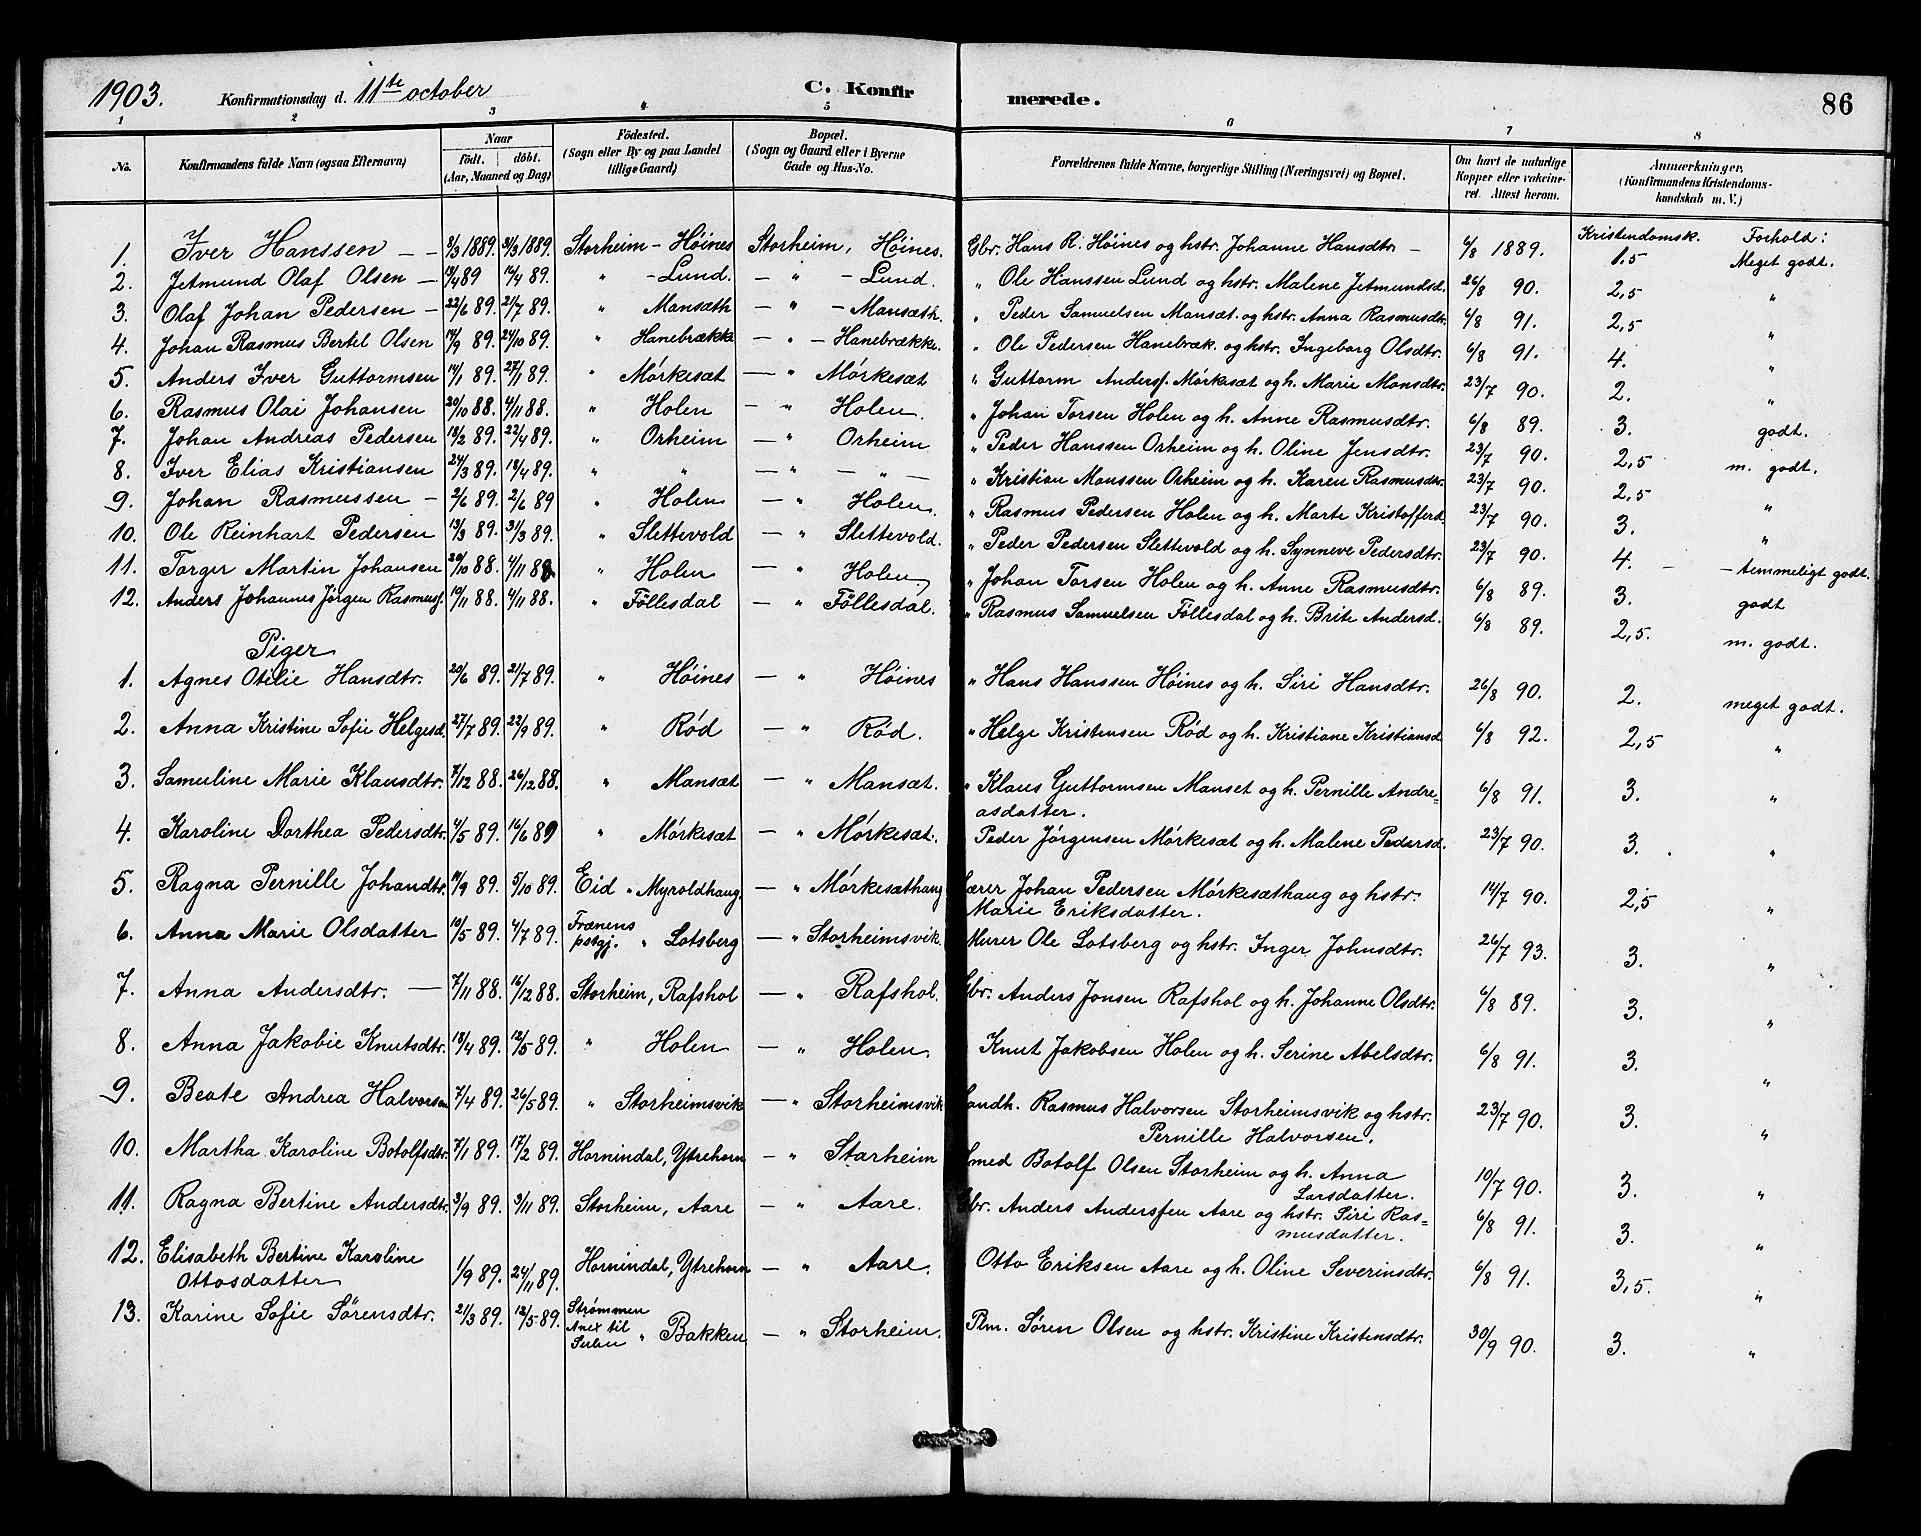 1903. Konfirmationsdag d. 11te october C. Konfirmerede. 86
1 2 3 4 5 6 7 8
No. Konfirmandens fulde Navn (ogsaa Efternavn) Naar födt. döbt. (Aar, Maaned og Dag) Födested. (Sogn eller By og paa Landet tillige Gaard) Bopæl. (Sogn og Gaard eller i Byerne Gade og Hus-No. Forældrenes fulde Navne, borgerlige Stilling (Næringsvei) og Bopæl. Om havt de naturlige Kopper eller vakcineret. Attest herom. Anmærkninger, (Konfirmandens Kristendomskundskab m. V.)
Kristendomsk. Forhold:
1. Iver Hanssen – – 3/3 1889. 31/3 1889. Storheim – Höines Storheim, Höines. Gbr. Hans R. Höines og hstr. Johanne Hansdtr. – 6/8 1889. 1.5 Meget godt.
2. Jetmund Olaf Olsen – 14/4 89 14/4 89. " – Lund. – " – Lund. " Ole Hanssen Lund og hstr. Malene Jetmundsd. 26/8 90. 2,5 "
3. Olaf Johan Pedersen – 22/6 89. 21/7 89. " Mansæth – " – Mansæth. " Peder Samuelsen Mansæt. og hstr. Anna Rasmusdtr. 6/8 91. 2,5 "
4. Johan Rasmus Bertel Olsen 14/9 89. 24/10 89. " Hanebrække – " – Hanebrække. " Ole Pedersen Hanebræk. og hstr. Ingeborg Olsdtr. 6/8 91. 4. "
5. Anders Iver Guttormsen 14/1 89. 27/1 89. " Mörkesæt – " Mörkesæt " Guttorm Andersf. Mörkesæt og h. Marie Monsdtr. 23/7 90. 2. "
6. Rasmus Olai Johansen 20/10 88. 4/11 88. " Holen – " Holen. " Johan Torsen Holen og h. Anne Rasmusdtr. 6/8 89. 3. godt.
7. Johan Andreas Pedersen 18/2 89. 22/4 89. " Orheim – " Orheim " Peder Hanssen Orheim og h. Oline Jensdtr. 23/7 90. 2,5 m. godt.
8. Iver Elias Kristiansen 24/3 89. 18/4 89. " " – " – " – " Kristian Monssen Orheim og h. Karen Rasmusdtr. 23/7 90. 2,5 "
9. Johan Rasmussen – 2/6 89. 2/6 89 " Holen – " Holen. " Rasmus Pedersen Holen og h. Marte Kristofferd. 23/7 90. 3. "
10. Ole Reinhart Pedersen 13/3 89. 31/3 89. " Slettevold – " Slettevold. " Peder Pedersen Slettevold og h. Synneve Pedersdtr. 23/7 90. 4. – – temmeligt godt.
11. Torger Martin Johansen 20/10 88. 4/11 88. " Holen – " Holen " Johan Torsen Holen og h. Anne Rasmusdtr. 6/8 89. 3. godt
12. Anders Johannes Jörgen Rasmusf. 19/11 88. 4/11 88. " Föllesdal – " Föllesdal. " Rasmus Samuelsen Föllesdal og h. Brite Andersd. 6/8 89. 2,5. m. godt.
Piger
1. Agnes Otilie Hansdtr. 20/6 89. 21/7 89. " Höines – " Höines " Hans Hanssen Höines og h. Siri Hansdtr. 26/8 90. 2. meget godt.
2. Anna Kristine Sofie Helgesd. 27/7 89. 22/9 89. " Röd – " Röd. " Helge Kristensen Röd og h. Kristiane Kristiansd 6/8 92. 2,5 "
3. Samuline Marie Klausdtr. 7/12 88. 26/12 88. " Mansæt – " Mansæt. " Klaus Guttormsen Manset og h. Pernille Andre=
asdatter. 6/8 91. 3. "
4. Karoline Dorthea Pedersdtr. 4/5 89. 16/6 89 " Mörkesæt – " Mörkesæt. Peder Jörgensen Mörkesæt og h. Malene Pedersd. 23/7 90. 3. "
5. Ragna Pernille Johandtr. 11/9 89. 5/10 89. Eid " Myroldhaug. – " Mörkesæthaug Lærer Johan Pedersen Mörkesæthaug og hstr.
Marie Eriksdatter. 14/7 90. 2,5 "
6. Anna Marie Olsdatter 10/5 89. 4/7 89. Frænens pstgj. " Lotsberg – " Storheimsvik. Murer Ole Lotsberg og hstr. Inger Johnsdtr. 26/7 93. 3. "
7. Anna Andersdtr. – 7/11 88. 16/12 88. Storheim, Rafshol – " Rafshol. Gbr. Anders Jonsen Rafshol og h. Johanne Olsdtr. 6/8 89. 3. "
8. Anna Jakobie Knutsdtr. 13/4 89. 12/5 89. " Holen – " Holen. Knut Jakobsen Holen og h. Serine Abelsdtr. 6/8 91. 3. "
9. Beate Andrea Halvorsen 7/4 89. 26/5 89. " Storheimsvik – " Storheimsvik Landh. Rasmus Halvorsen Storheimsvik og hstr.
Pernille Halvorsen. 23/7 90. 3. "
10. Martha Karoline Botolfsdtr. 7/1 89. 17/2 89. Hornindal, Ytrehorn – " Starheim Smed Botolf Olsen Storheim og h. Anna
Larsdatter. 10/7 90. 3. "
11. Ragna Bertine Andersdtr. 3/9 89. 3/11 89. Storheim, Aare – " Aare. Gbr. Anders Andersfen Aare og hstr. Siri Ras=
musdatter. 6/8 91. 3. "
12. Elisabeth Bertine Karoline
Ottosdatter 1/9 89. 24/11 89. Hornindal, Ytrehorn – " Aare. Otto Eriksen Aare og h. Oline Severinsdtr. 6/8 91. 3,5. "
13. Karine Sofie Sörensdtr. 21/3 89. 12/5 89. Strömmen Anex til " Bakken – " Storheim. Plm. Sören Olsen og hstr. Kristine Kristensdtr. 30/9 90. 3. "